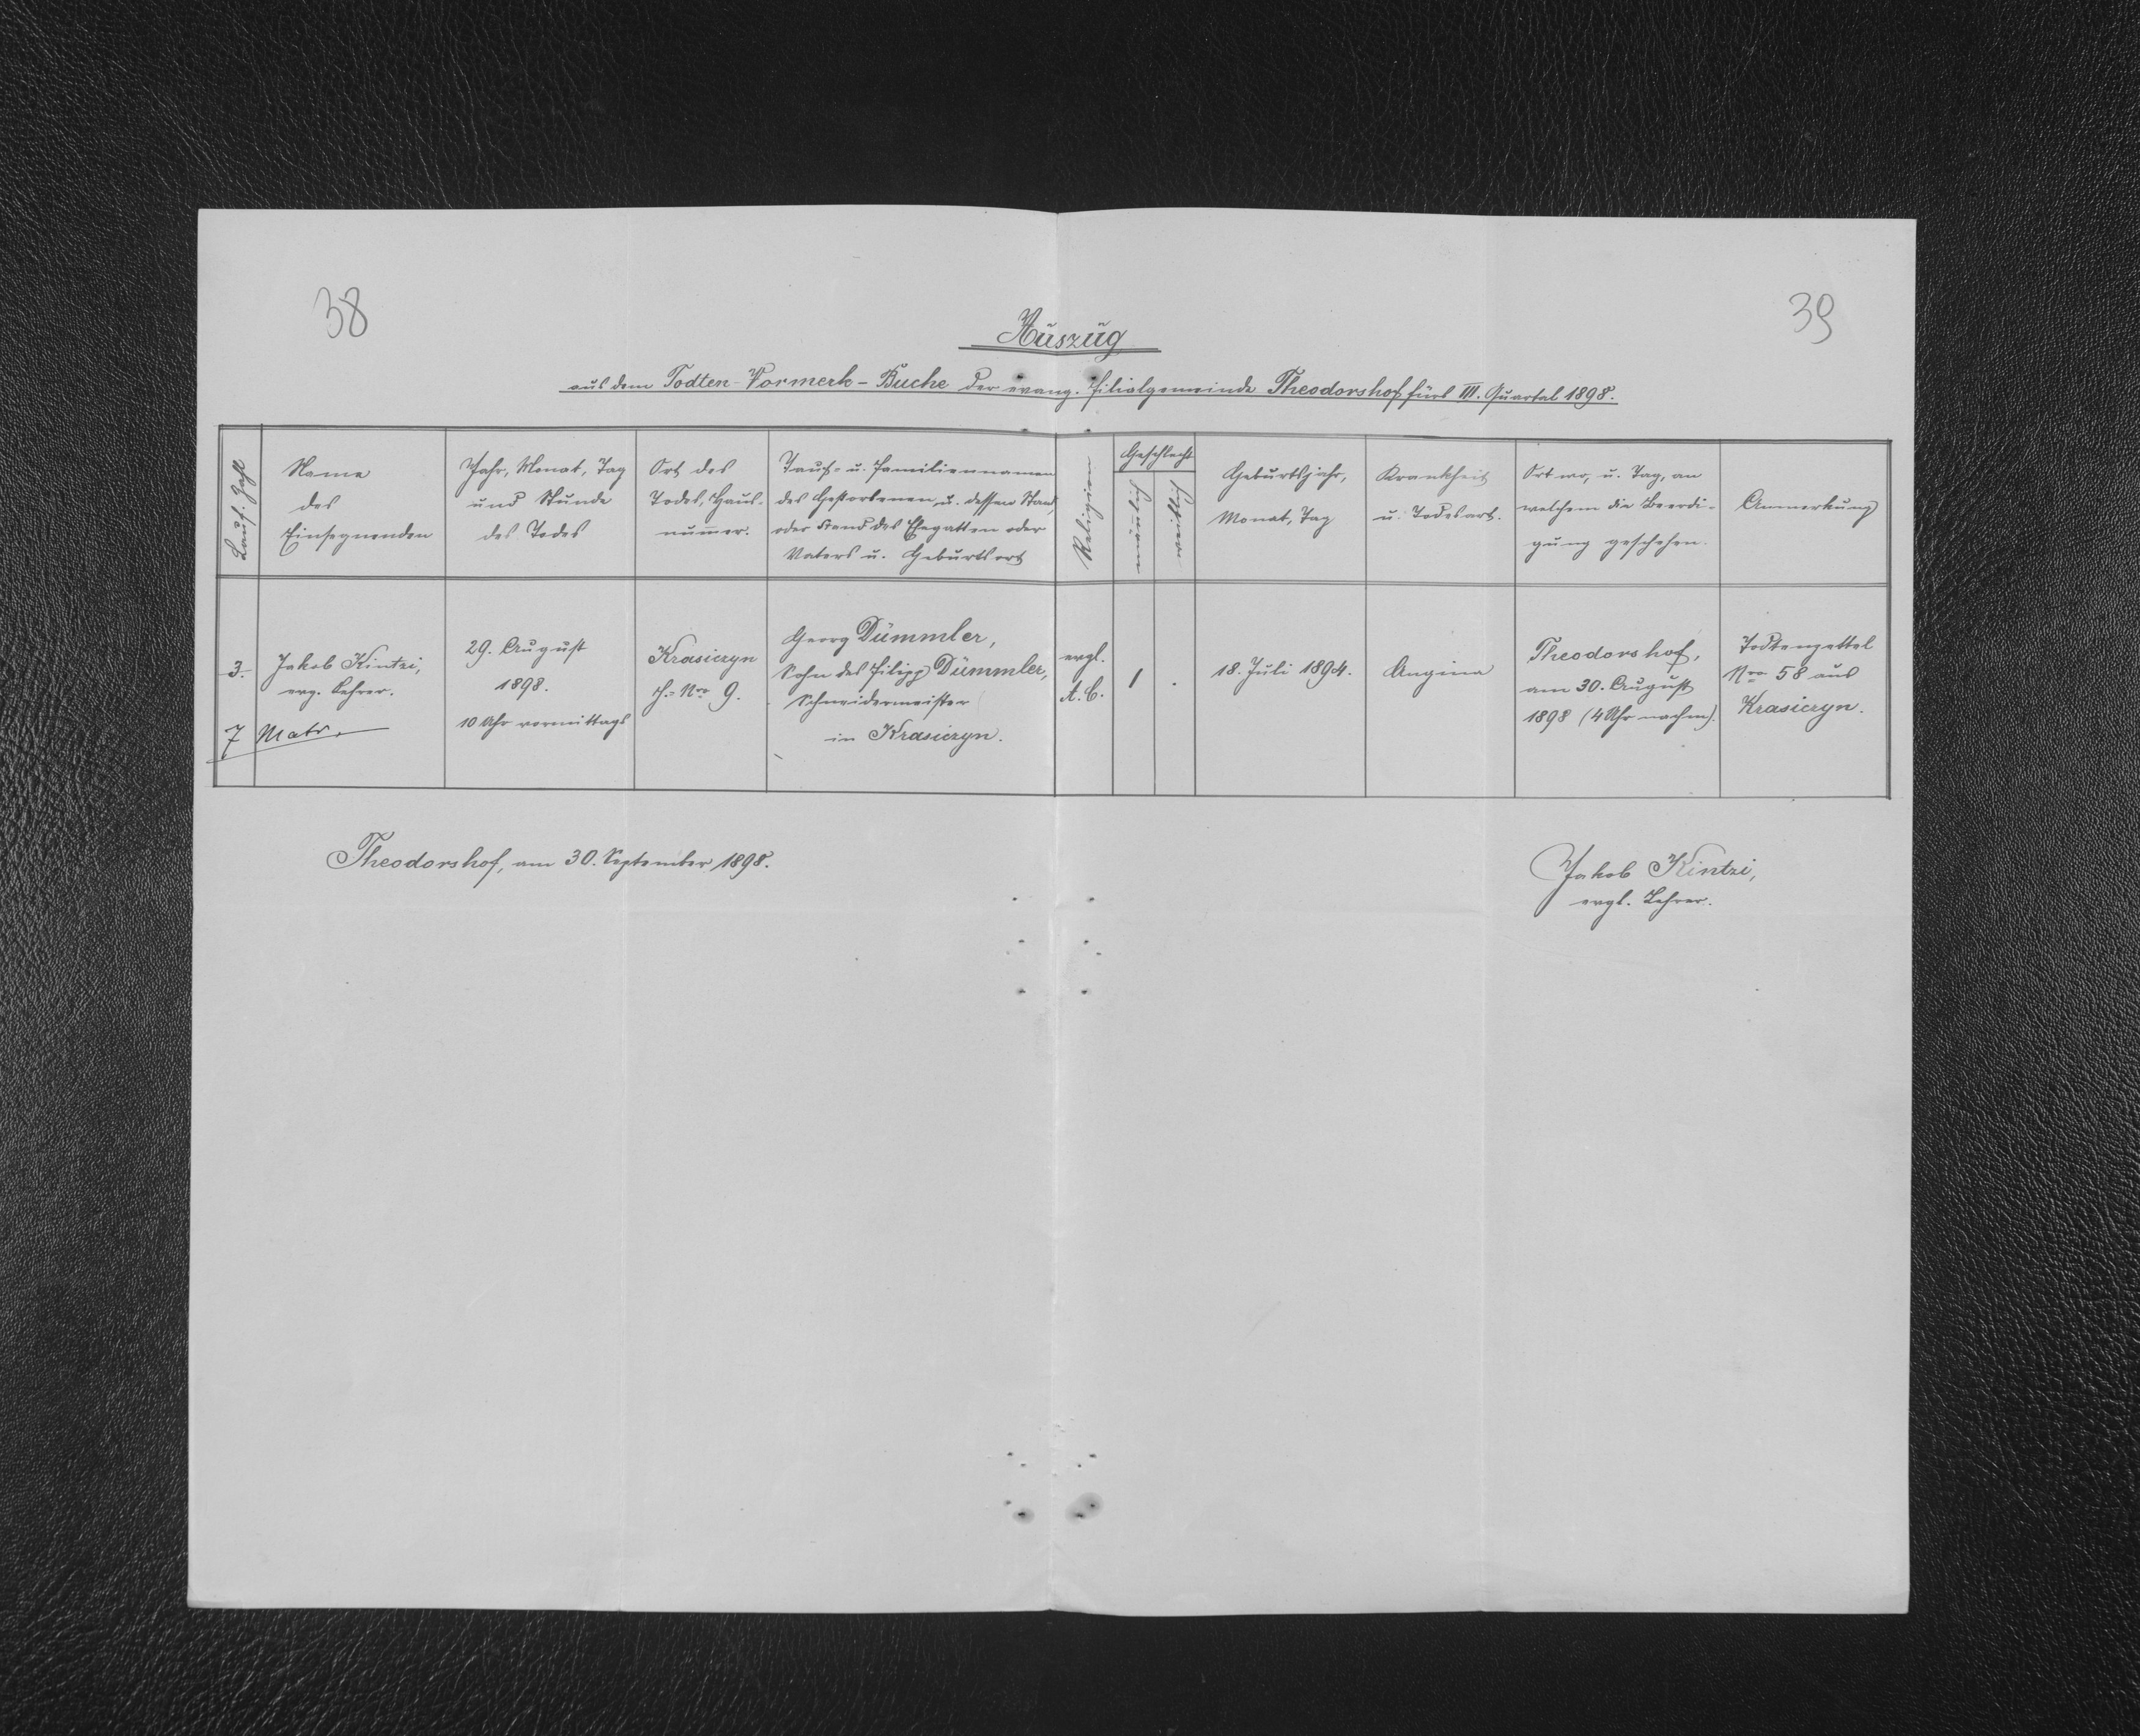 38
39
Auszug
aus dem Todten-Vormerk-Buche der evang. Filialgemeinde Theodorshof fürs III. Quartal 1898.
Lauf. Zahl
Name
des
Einsegnenden
Jahr, Monat, Tag
und Stunde
des Todes
Ort des
Todes, Haus-
num̅er.
Tauf- u. Familiennamen
des Gestorbenen, u. dessen Stand,
oder Stand des Ehegatten oder
Vaters u. Geburtsort
Religion
Geschlecht
män̅lich
weiblich
Geburtsjahr,
Monat, Tag
Krankheit
u. Todesart.
Ort wo, u. Tag, an
welchem die Beerdi-
gung geschehen.
Anmerkung
3.
Jakob Kintzi,
evg. Lehrer.
29. August
1898.
10 Uhr vormittags
Krasiczyn
H.-Nro 9.
Georg Dümmler,
Sohn des Filipp Dümmler,
Schneidermeister
in Krasiczyn.
evgl.
A. C.
1
.
18. Juli 1894.
Angina
Theodorshof,
am 30. August
1898 (4 Uhr nachm).
Todtenzettel
Nro 58 aus
Krasiczyn.
7 Matr.
Theodorshof, am 30. September 1898.
Jakob Kintzi,
evgl. Lehrer.